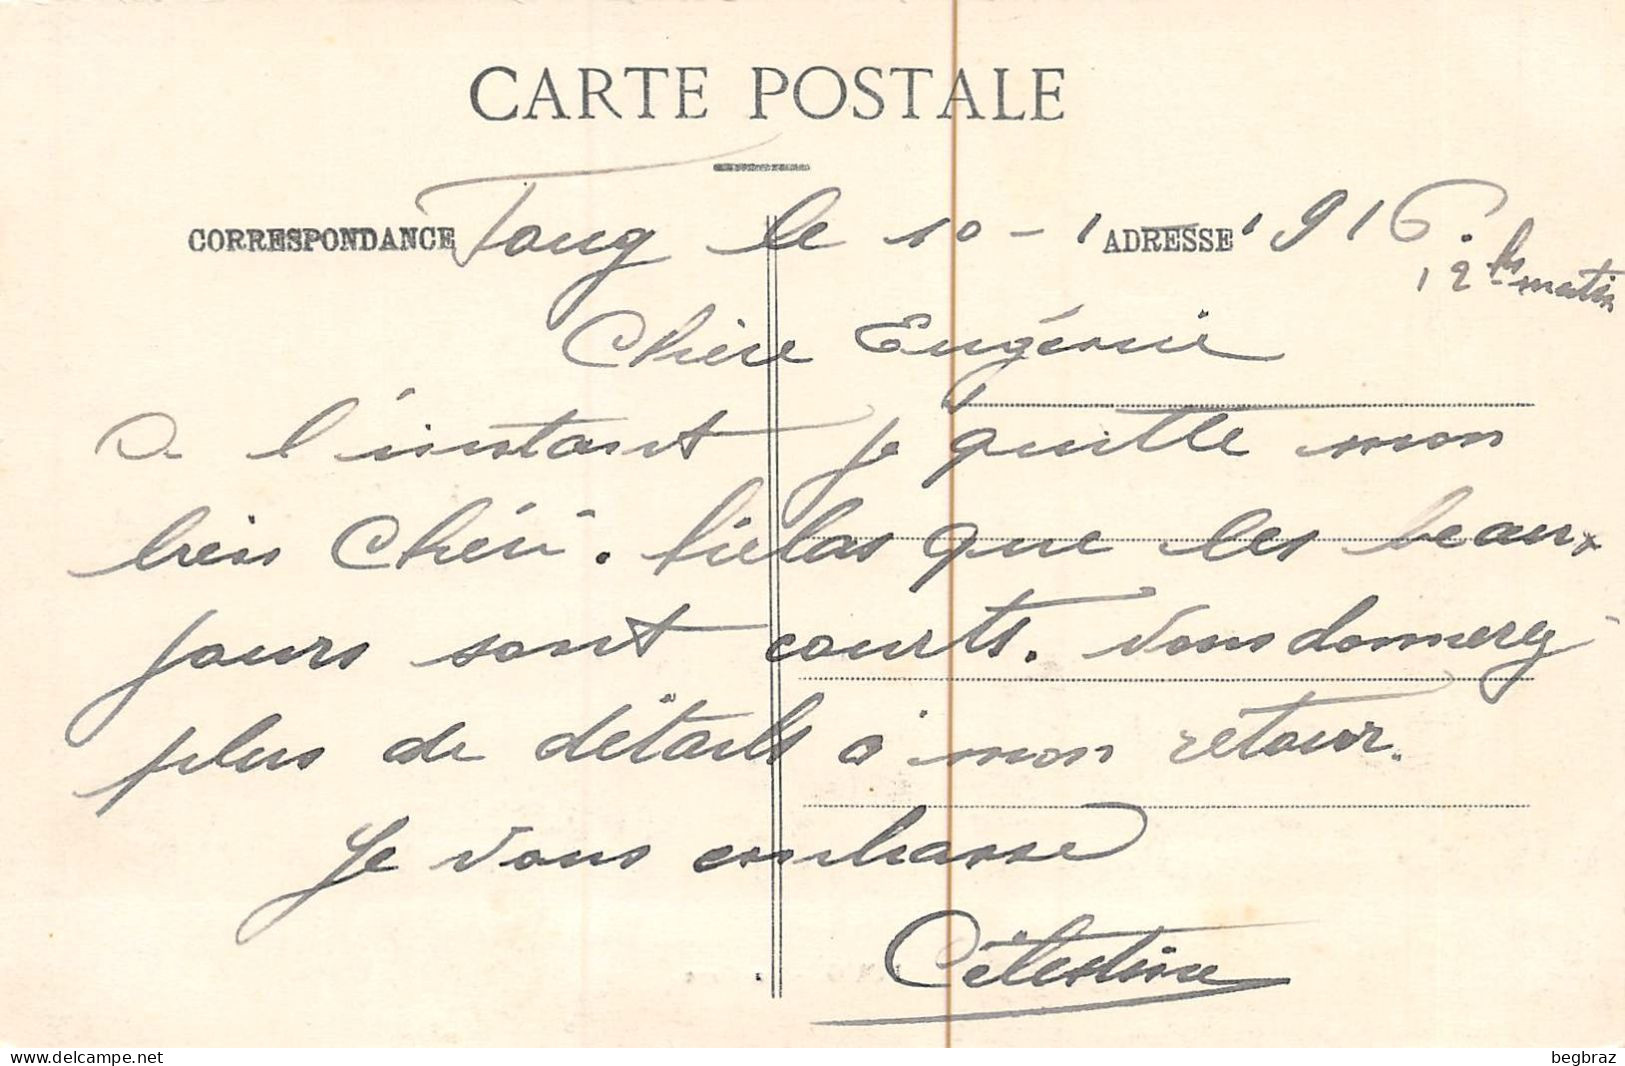 CARTE POSTALE
CORRESPONDANCE
ADRESSE
Toug le 10-1-1916.
12 hs matin
Chère Eugénie
A l'instant je quitte mon
bien Chéri. hélas que les beaux
jours sont courts. Vous donnerez
plus de détails à mon retour.
Je vous embrasse
Célestine
www.delcampe.net
begbraz